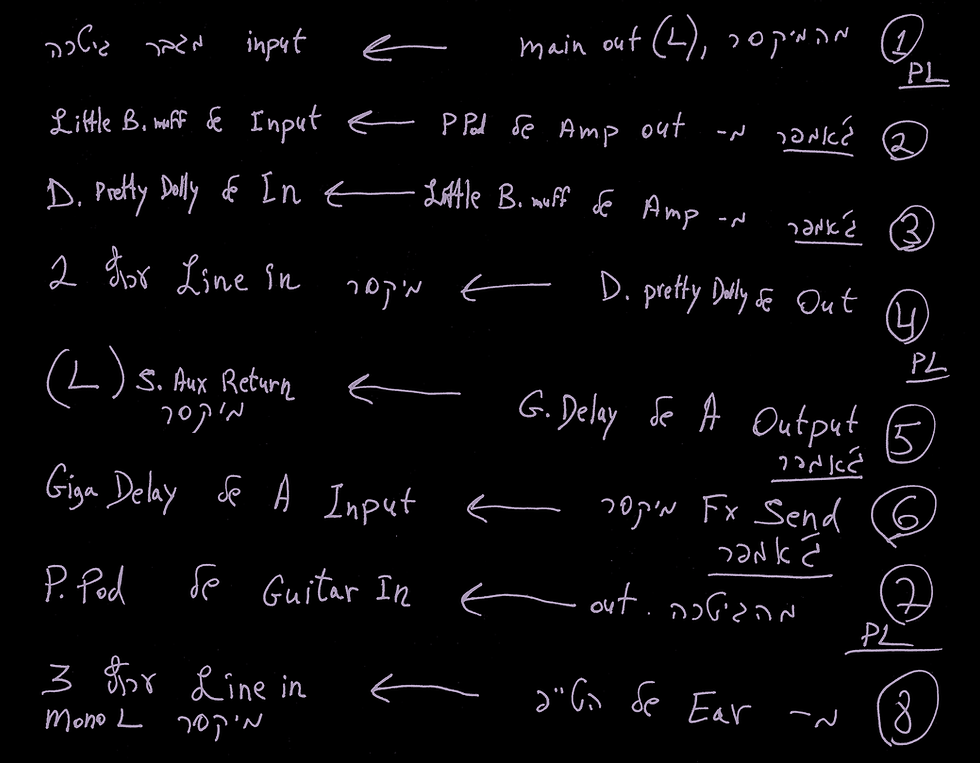 ① מהמיקסר, main out (L) ← input מגבר גיטרה
PL
② ג'אמפר מ- Amp out של P Pod ← Input של Little B. muff
③ ג'אמפר מ- Amp של Little B. muff ← In של D. Pretty Dolly
④ Out של D. pretty Dolly ← מיקסר Line in ערוץ 2
PL
⑤ G. Delay של A Output ← S. Aux Return (L)
ג'אמפר מיקסר
⑥ Fx Send מיקסר ← Giga Delay של A Input
ג'אמפר
⑦ מהגיטרה out. ← Guitar In של P. Pod
PL
⑧ מ- Ear של הטייפ ← Line in ערוץ 3
מיקסר Mono L